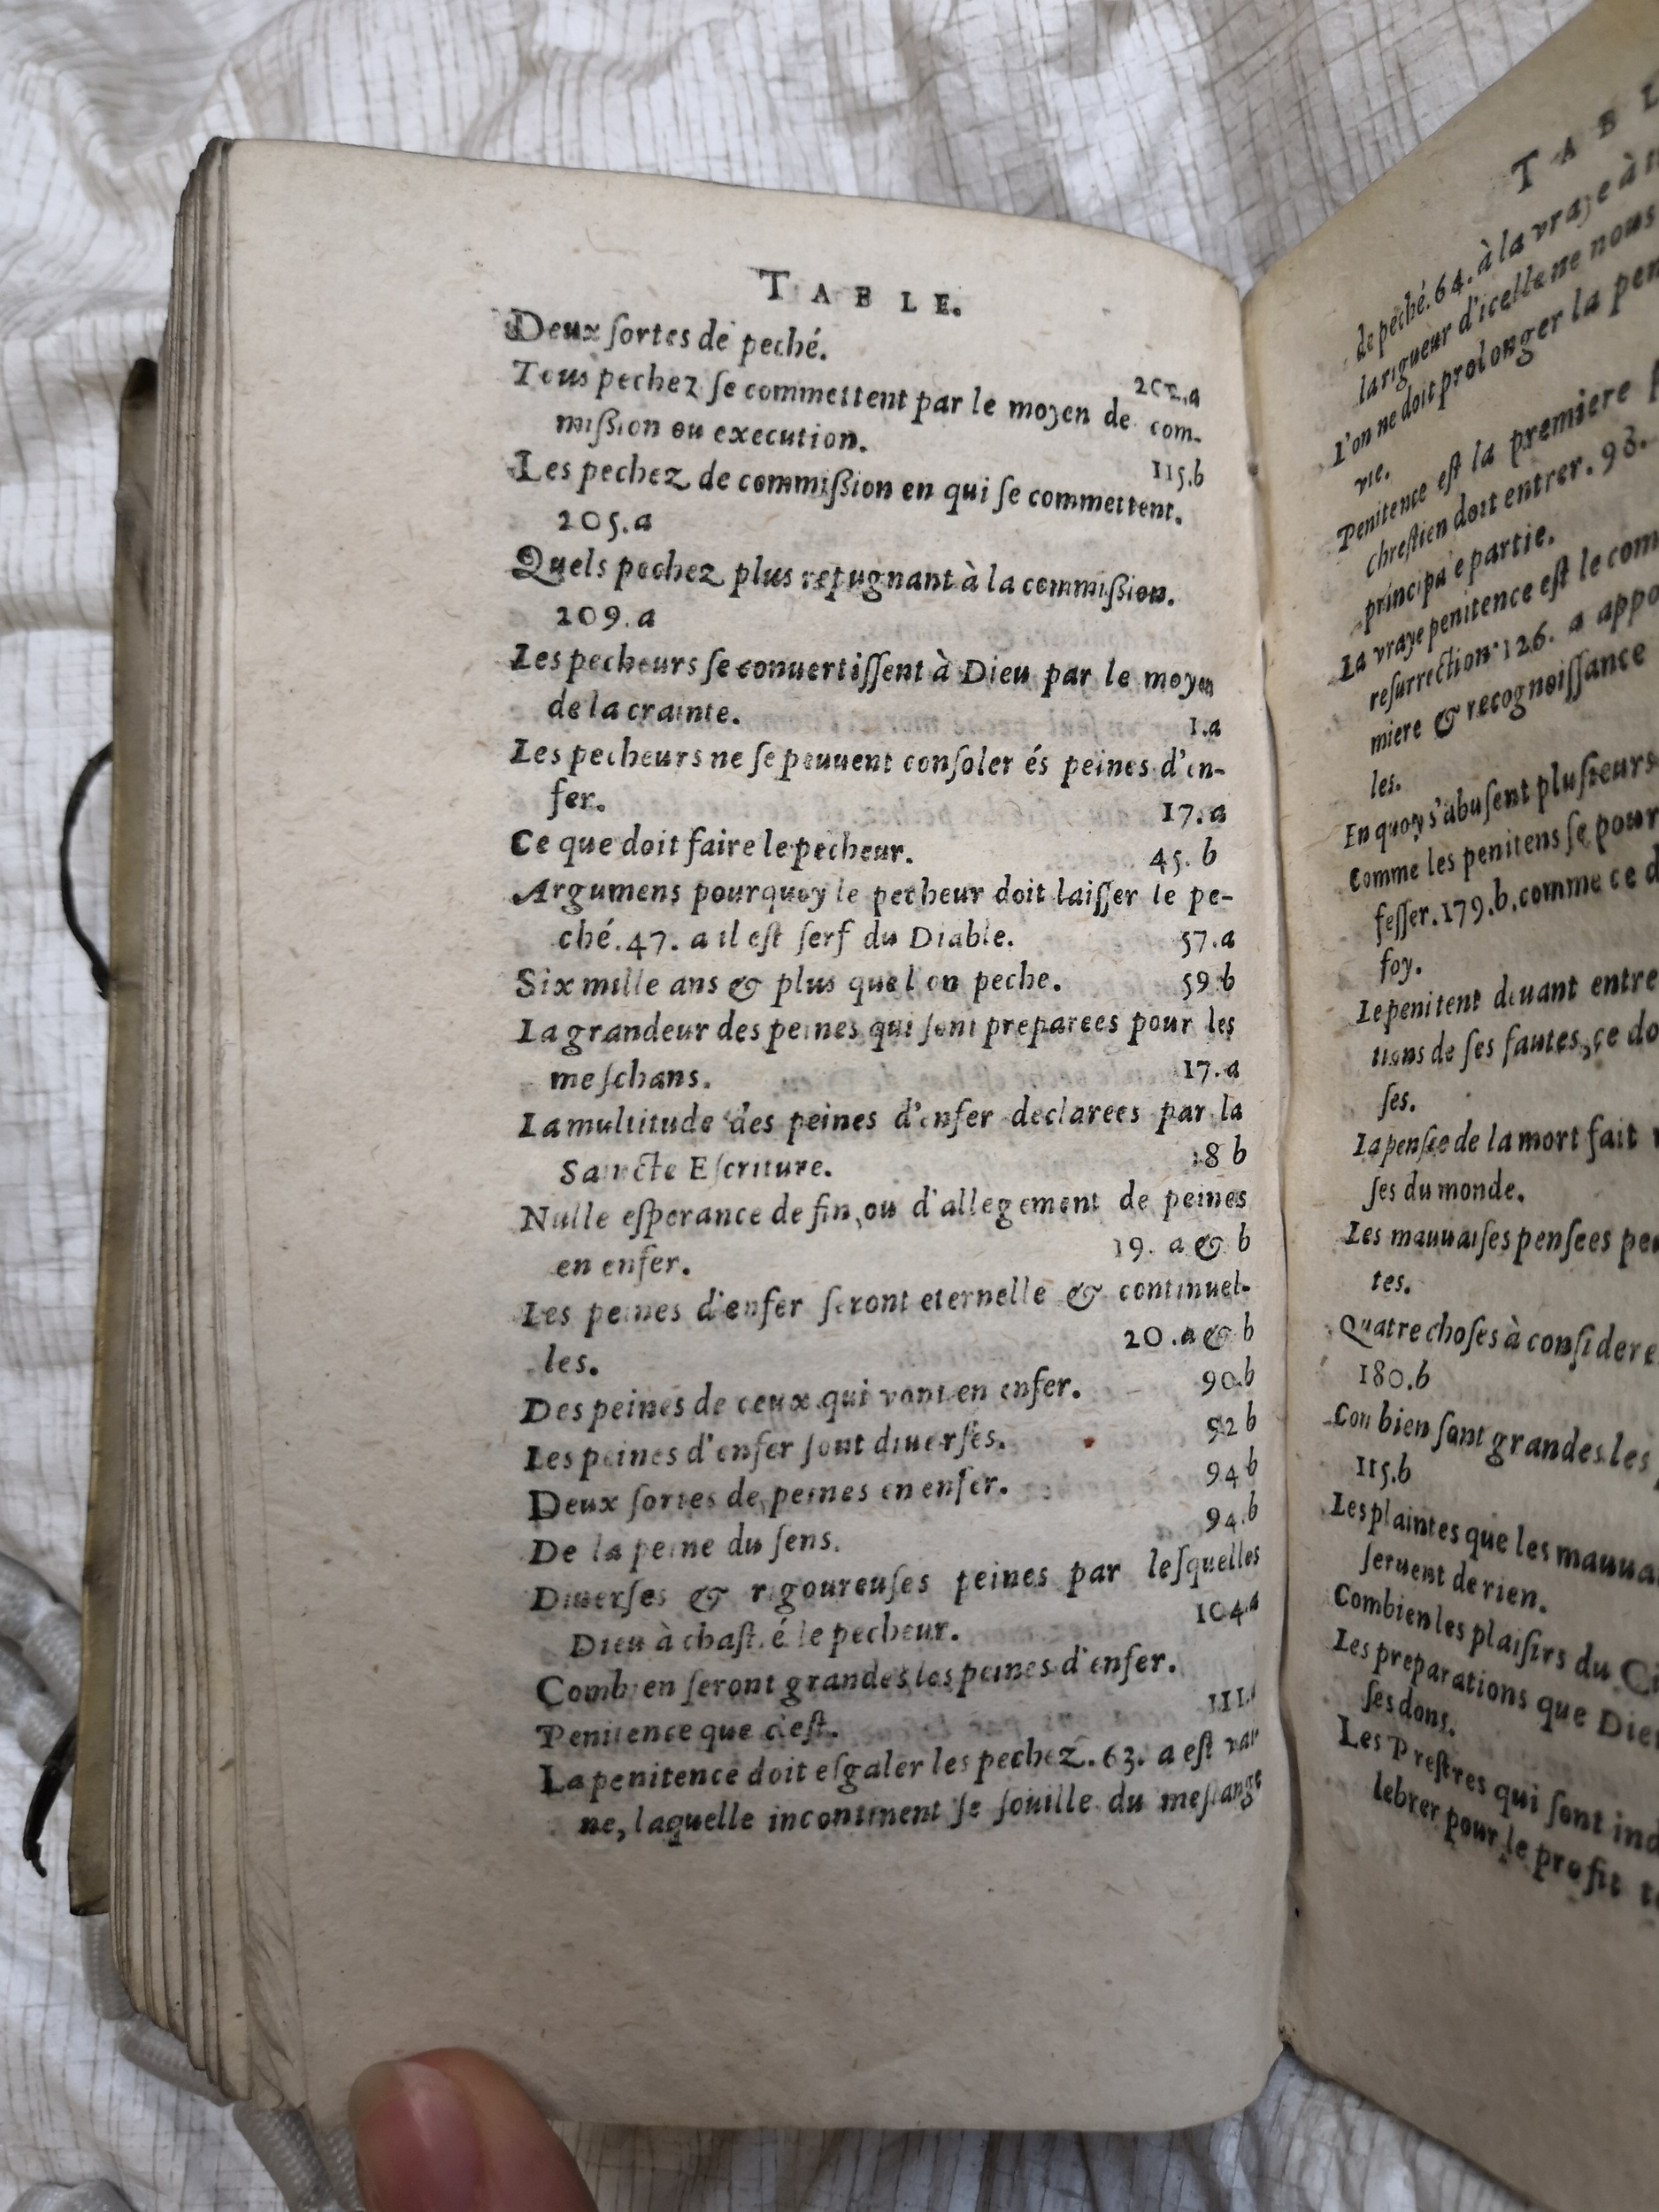 TABLE.
Deux ſortes de peché.
Tous pechez ſe commettent par le moyen de com-
miſsion ou execution. 115.b
Les pechez de commiſsion en qui ſe commettent.
205.a
Quels pechez plus repugnant à la commiſsion.
209.a
Les pecheurs ſe conuertiſſent à Dieu par le moyen
de la crainte. 1.a
Les pecheurs ne ſe peuuent conſoler és peines d'en-
fer. 17.a
Ce que doit faire le pecheur. 45.b
Argumens pourquoy le pecheur doit laiſſer le pe-
ché.47. a il eſt ſerf du Diable. 57.a
Six mille ans & plus que l'on peche. 59.b
La grandeur des peines qui ſont preparees pour les
meſchans. 17.a
La multitude des peines d'enfer declarees par la
Saincte Eſcriture. 18 b
Nulle eſperance de fin, ou d'allegement de peines
en enfer. 19. a & b
Les peines d'enfer ſeront eternelle & continuel-
les. 20.a & b
Des peines de ceux qui vont en enfer. 90.b
Les peines d'enfer ſont diuerſes. 92 b
Deux ſortes de peines en enfer. 94 b
De la peine du ſens. 94.b
Diuerſes & rigoureuſes peines par leſquelles
Dieu à chaſtié le pecheur. 104.a
Combien ſeront grandes les peines d'enfer.
Penitence que c'eſt.
La penitence doit eſgaler les pechez. 63. a eſt vai-
ne, laquelle incontinent ſe ſouille du meſlange
TABL
de peché.64. à la vraye à
la rigueur d'icelle ne nous
l'on ne doit prolonger la
vie.
Penitence eſt la premiere
chreſtien doit entrer.
principa e partie.
La vraye penitence eſt le
reſurrection 126. a
miere & recognoiſſance
les.
En quoy s'abuſent pluſieurs
Comme les penitens ſe
feſſer.179.b. comme ce
foy.
Le penitent deuant entre
tions de ſes fautes, ce
ſes.
La penſee de la mort fait
ſes du monde.
Les mauuaiſes penſees
tes.
Quatre choſes à conſidere
180.b
Con bien ſont grandes les
115.b
Les plaintes que les
ſeruent de rien.
Combien les plaiſirs du
Les preparations que
ſes dons.
Les Preſtres qui ſont
lebrer pour le profit